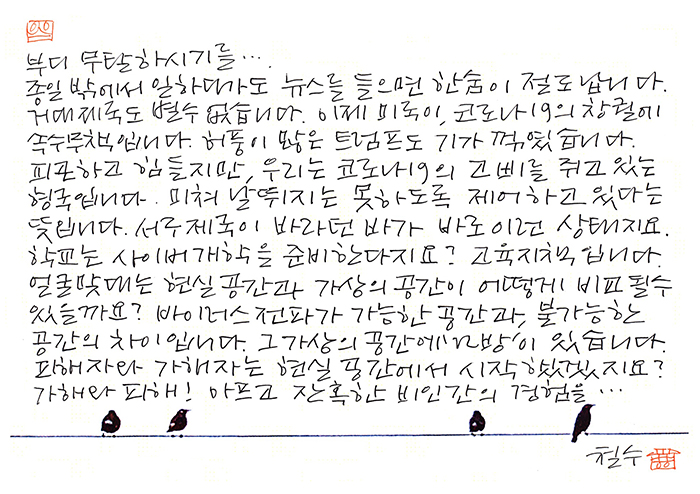 부디 무탈하시기를….
종일 밖에서 일하다가도 뉴스를 들으면 한숨이 절로 납니다.
거대제국도 별수 없습니다. 이제 미국이, 코로나19의 창궐에
속수무책입니다. 허풍이 많은 트럼프도 기가 꺾였습니다.
피곤하고 힘들지만, 우리는 코로나19의 고삐를 쥐고 있는
형국입니다. 미쳐 날뛰지는 못하도록 제어하고 있다는
뜻입니다. 서구제국이 바라던 바가 바로 이런 상태지요.
학교는 사이버개학을 준비한다지요? 고육지책입니다.
얼굴맞대는 현실공간과 가상의 공간이 어떻게 비교될수
있을까요? 바이러스전파가 가능한 공간과, 불가능한
공간의 차이입니다. 그가상의 공간에 'n번방'이 있습니다.
피해자와 가해자는 현실 공간에서 시작했겠지요?
가해와 피해! 아프고 잔혹한 비인간의 경험을 …
철수